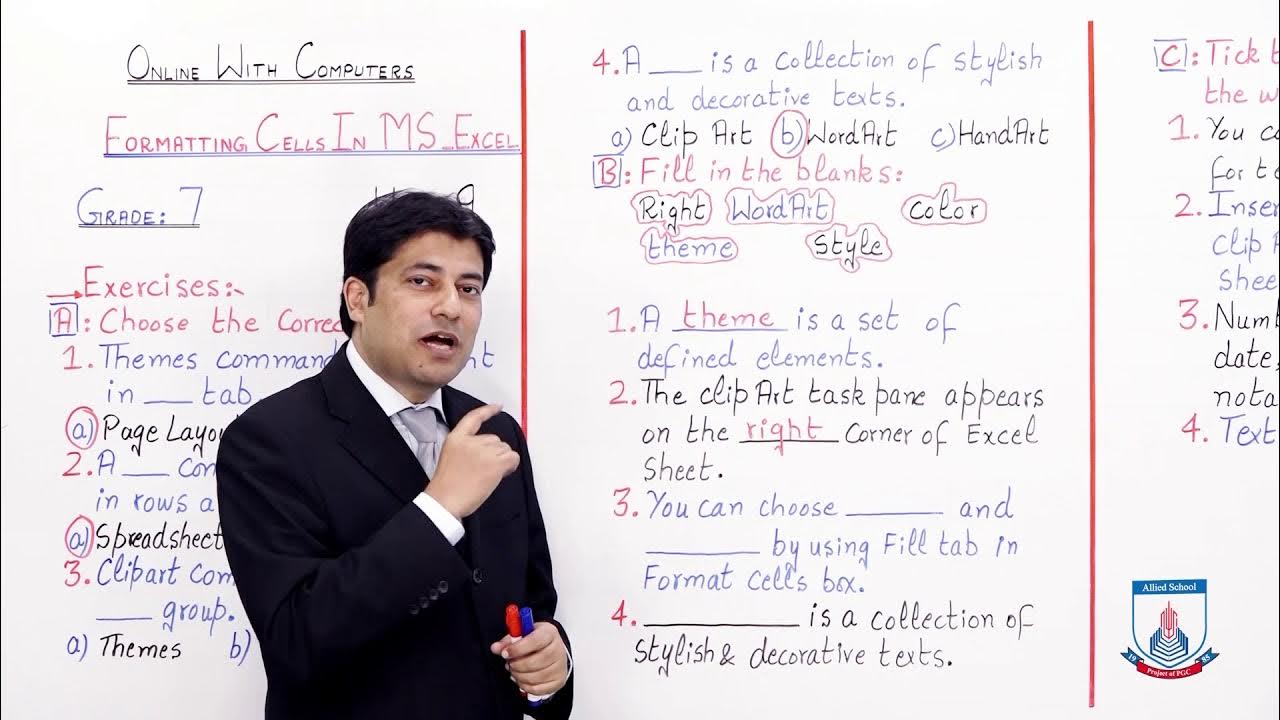 ONLINE WITH COMPUTERS
FORMATTING CELLS IN MS EXCEL
GRADE: 7 9
Exercises:
A: Choose the Correc
1. Themes command
in ___ tab
a) Page Layou
2. A ___ con
in rows a
a) Spreadsheet
3. Clipart com
___ group.
a) Themes b)
4. A ___ is a collection of stylish
and decorative texts.
a) Clip Art b) WordArt c) HandArt
B: Fill in the blanks:
Right WordArt color
theme Style
1. A theme is a set of
defined elements.
2. The clip Art task pane appears
on the right Corner of Excel
Sheet.
3. You can choose ______ and
______ by using Fill tab in
Format Cells box.
4. ______ is a collection of
stylish & decorative texts.
C: Tick t
the w
1. You c
for t
2. Inser
Clip A
Shee
3. Numb
date,
nota
4. Text
Allied School
19 85
Project of PGC